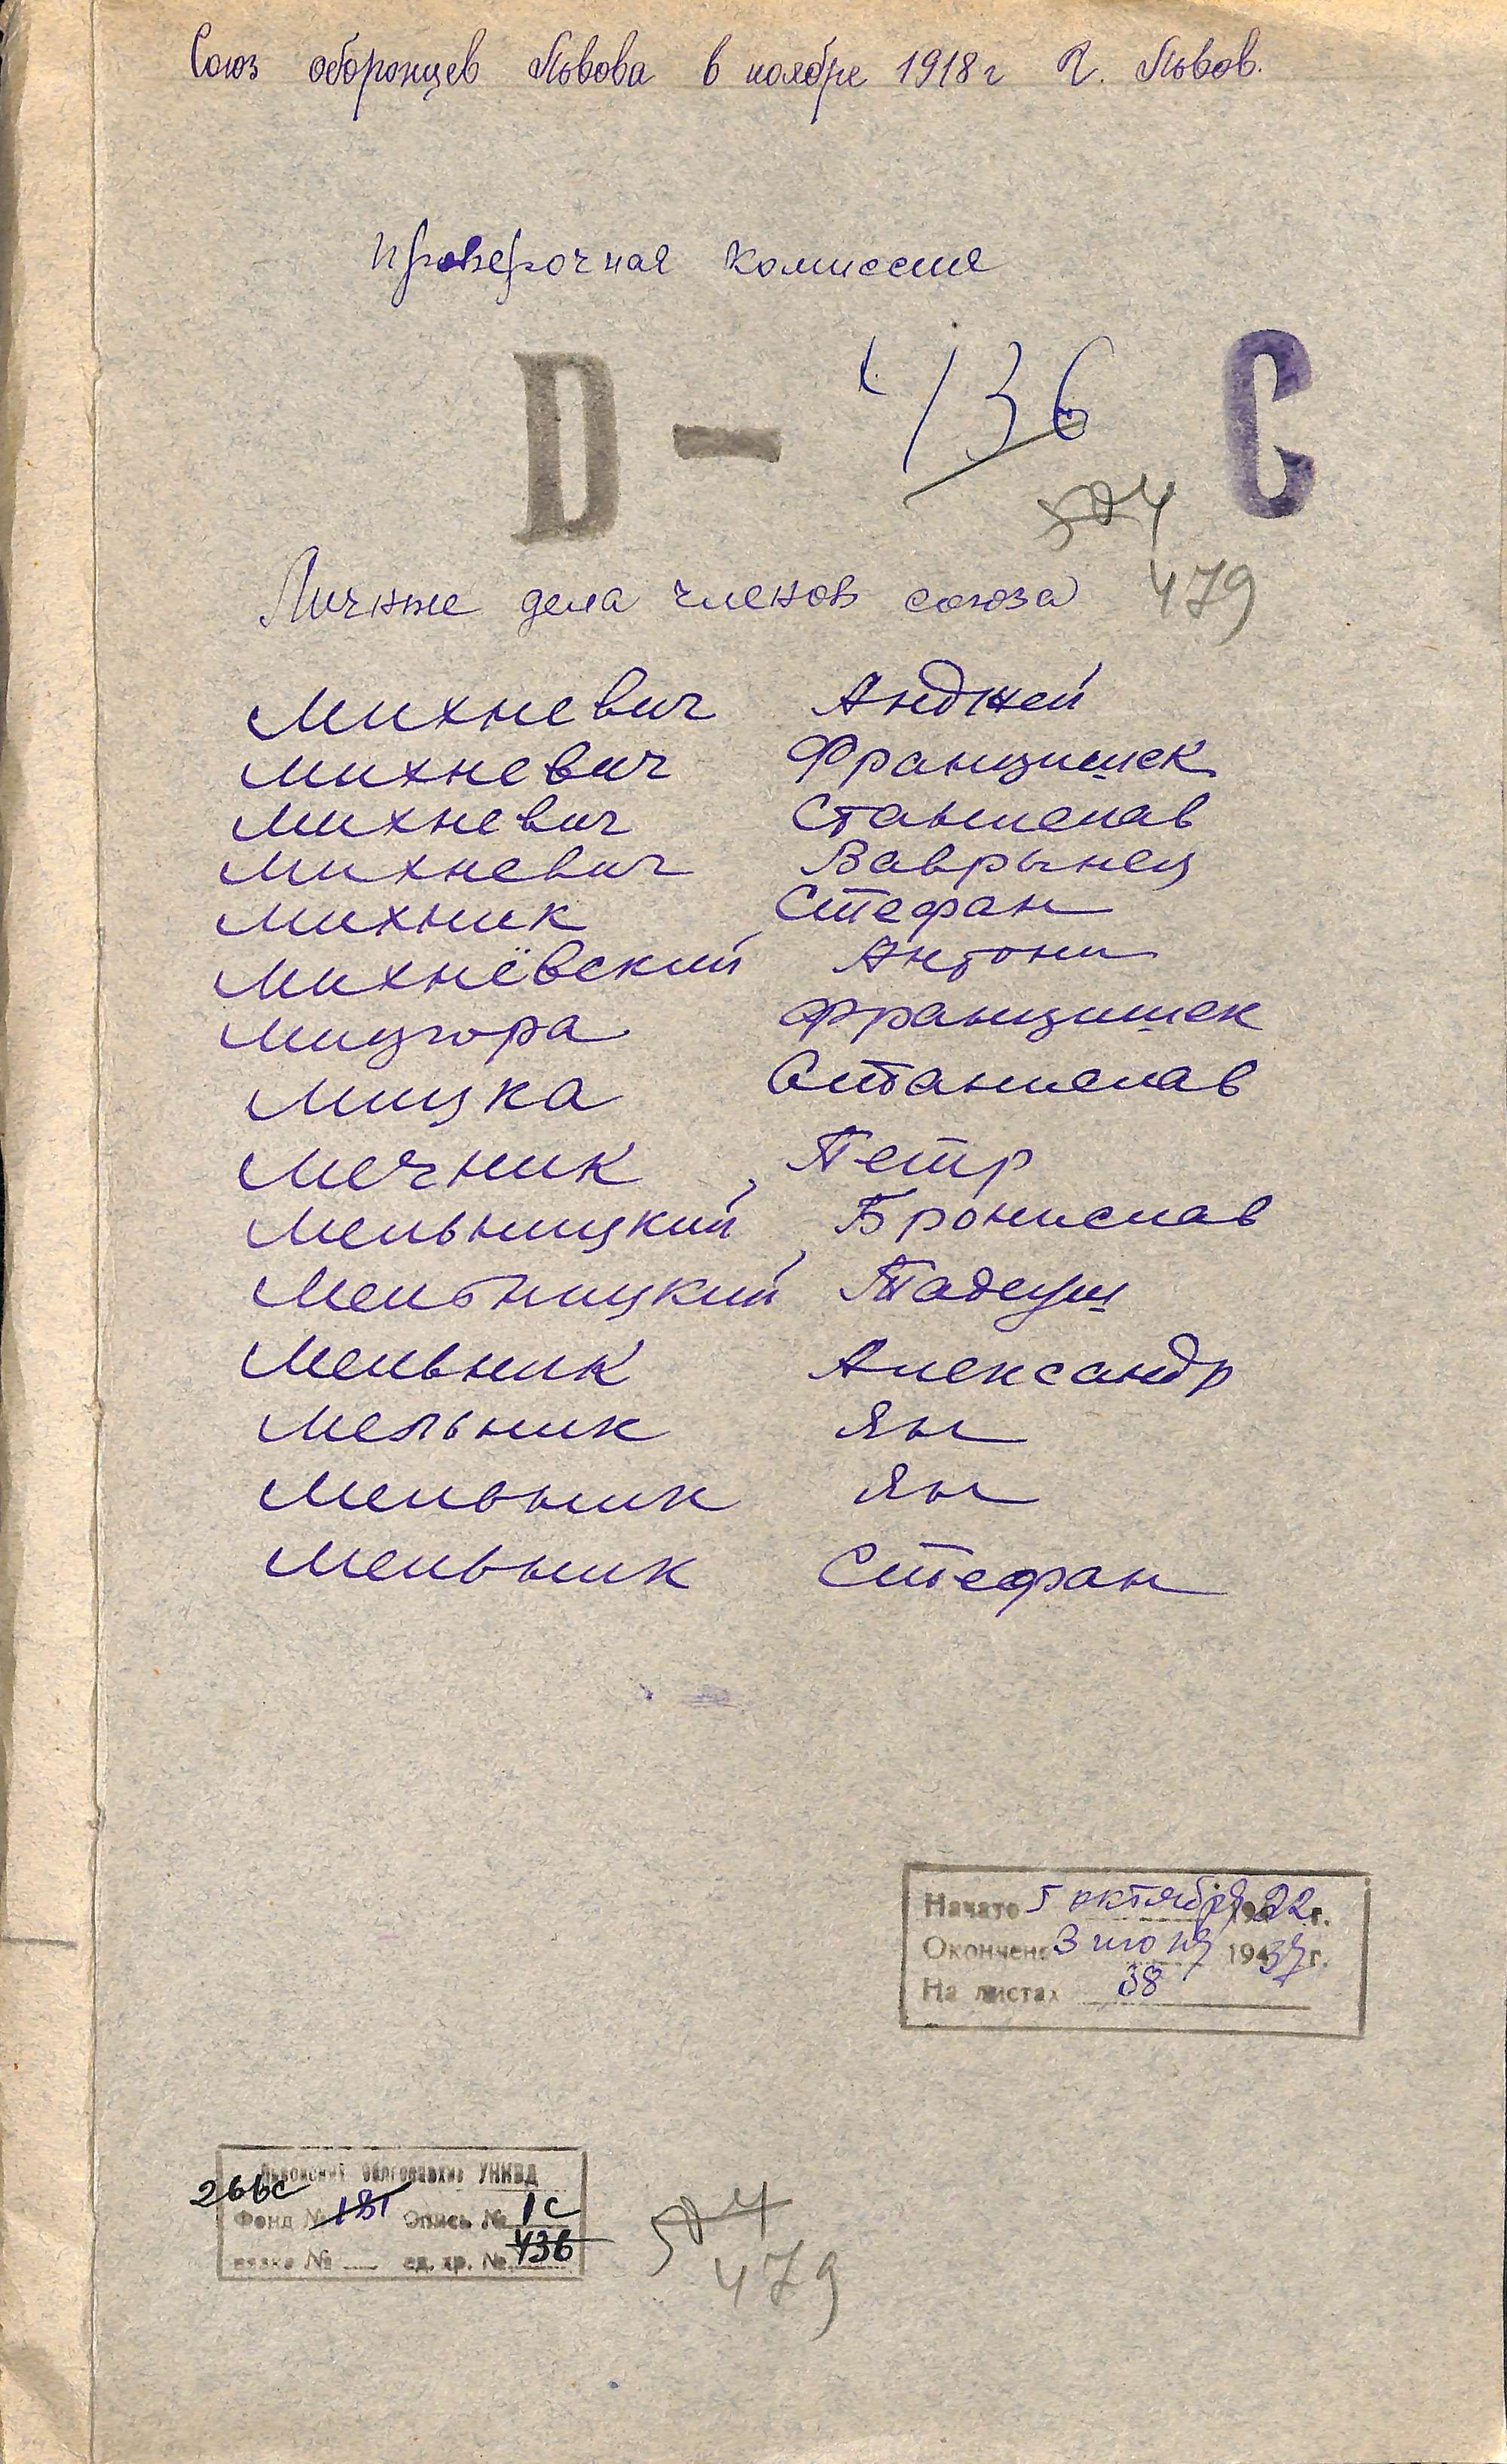 Союз оборонцев Львова в ноябре 1918 г г. Львов.
Проверочная комиссия
D – 436 C
504
479
Личные дела членов союза
Михневич Анджей
Михневич Францишек
Михневич Станислав
Михневич Ваврынец
Михник Стефан
Михнёвский Антони
Мицгора Францишек
Мицка Станислав
Мечник Петр
Мельницкий, Бронислав
Мельницкий, Тадеуш
Мельник Александр
Мельник Ян
Мельник Ян
Мельник Стефан
Начато 5 октября 1922 г.
Окончено 3 июня 1937 г.
На листах 38
Львовский Облгосархив УНКВД
266с
Фонд № 181 Опись № 1с
вязка № ед. хр. № 436
504
479